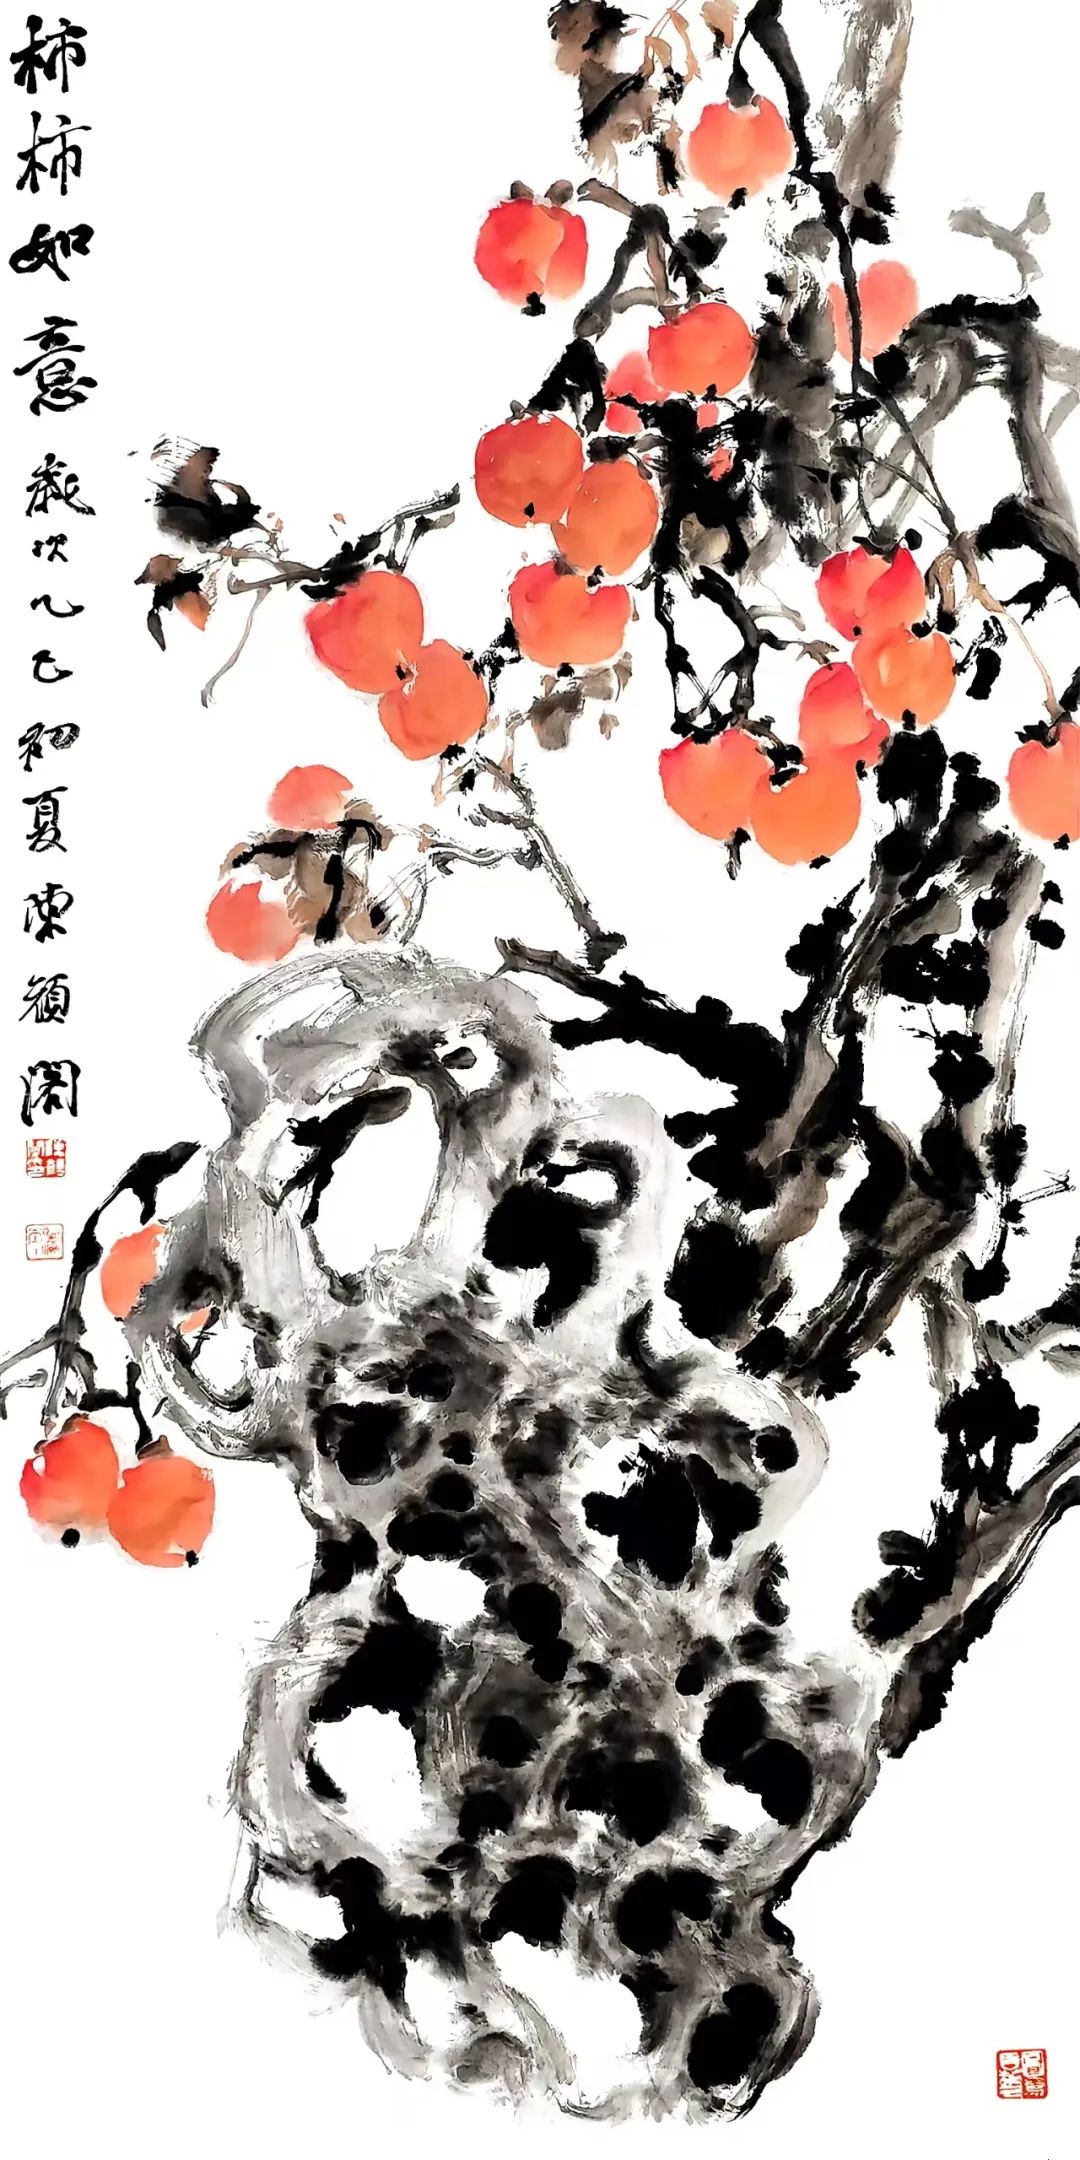 柿柿如意 歲次乙巳初夏 陳頎閣